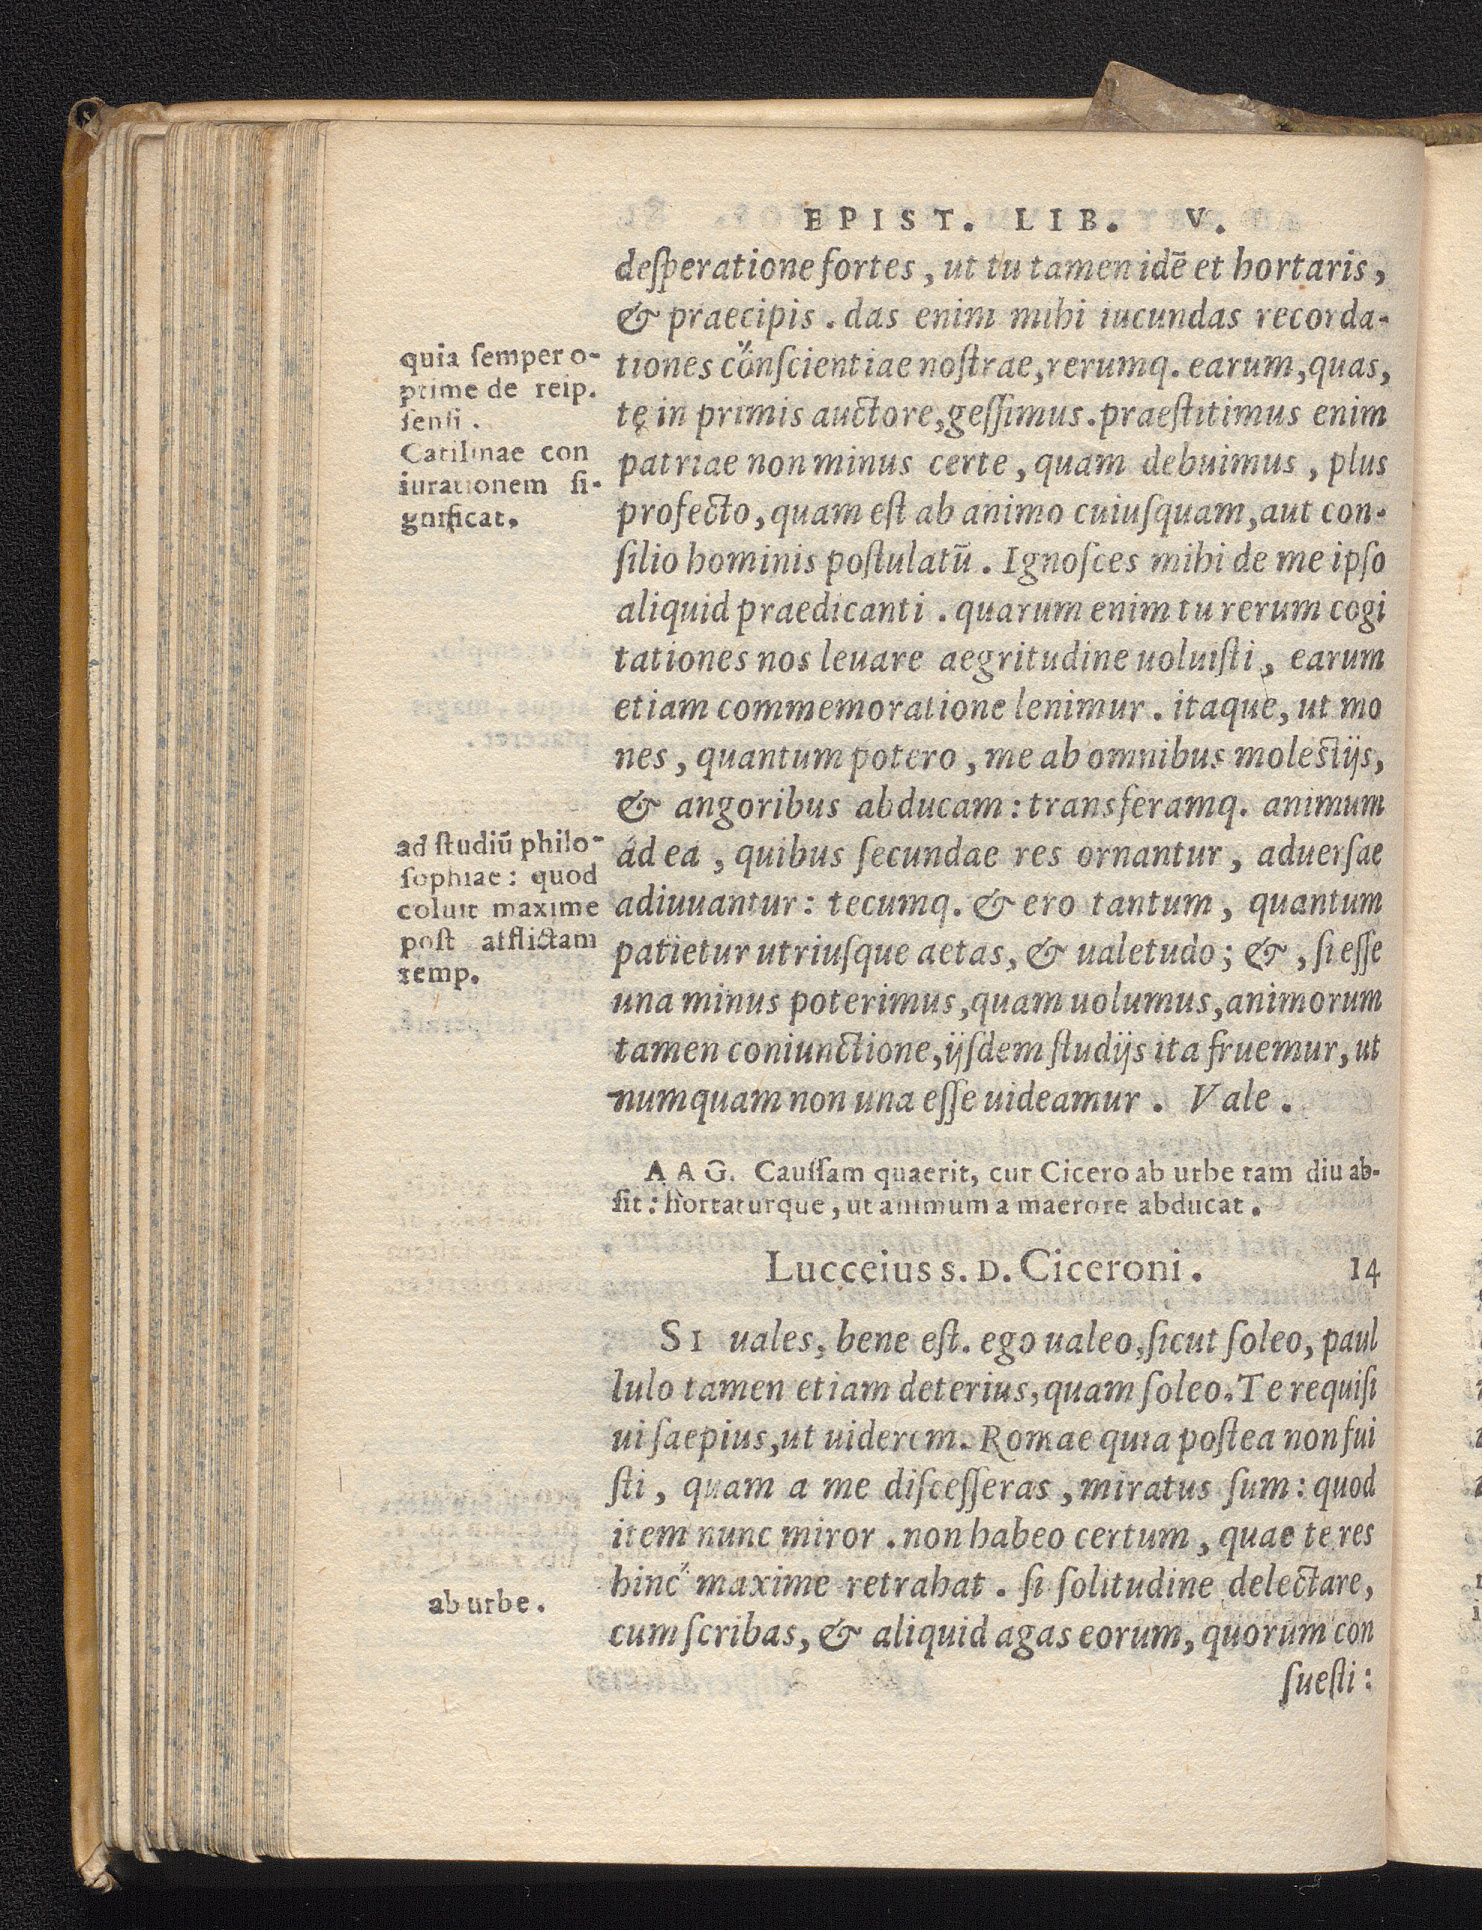 EPIST. LIB. V.
deſperatione fortes, ut tu tamen idē et hortaris,
& praecipis. das enim mihi iucundas recorda-
tiones conſcientiae noſtrae, rerumq. earum, quas,
te in primis auctore, geſſimus. praeſtitimus enim
patriae non minus certe, quam debuimus, plus
profecto, quam eſt ab animo cuiuſquam, aut con-
ſilio hominis poſtulatū. Ignoſces mihi de me ipſo
aliquid praedicanti. quarum enim tu rerum cogi
tationes nos leuare aegritudine uoluiſti, earum
etiam commemoratione lenimur. itaque, ut mo
nes, quantum potero, me ab omnibus moleſtijs,
& angoribus abducam: transferamq. animum
ad ea, quibus ſecundae res ornantur, aduerſae
adiuuantur: tecumq. & ero tantum, quantum
patietur utriuſque aetas, & ualetudo; &, ſi eſſe
una minus poterimus, quam uolumus, animorum
tamen coniunctione, ijſdem ſtudijs ita fruemur, ut
numquam non una eſſe uideamur. Vale.
quia ſemper o-
ptime de reip.
ſenſi.
Catilinae con
iurationem ſi-
gnificat.
ad ſtudiū philo-
ſophiae: quod
coluit maxime
poſt afflictam
remp.
A A G. Cauſſam quaerit, cur Cicero ab urbe tam diu ab-
ſit: hortaturque, ut animum a maerore abducat.
Lucceius s. D. Ciceroni. 14
SI uales, bene eſt. ego ualeo, ſicut ſoleo, paul
lulo tamen etiam deterius, quam ſoleo. Te requiſi
ui ſaepius, ut uiderem. Romae quia poſtea non fui
ſti, quam a me diſceſſeras, miratus ſum: quod
item nunc miror. non habeo certum, quae te res
hinc maxime retrahat. ſi ſolitudine delectare,
cum ſcribas, & aliquid agas eorum, quorum con
ſueſti:
ab urbe.